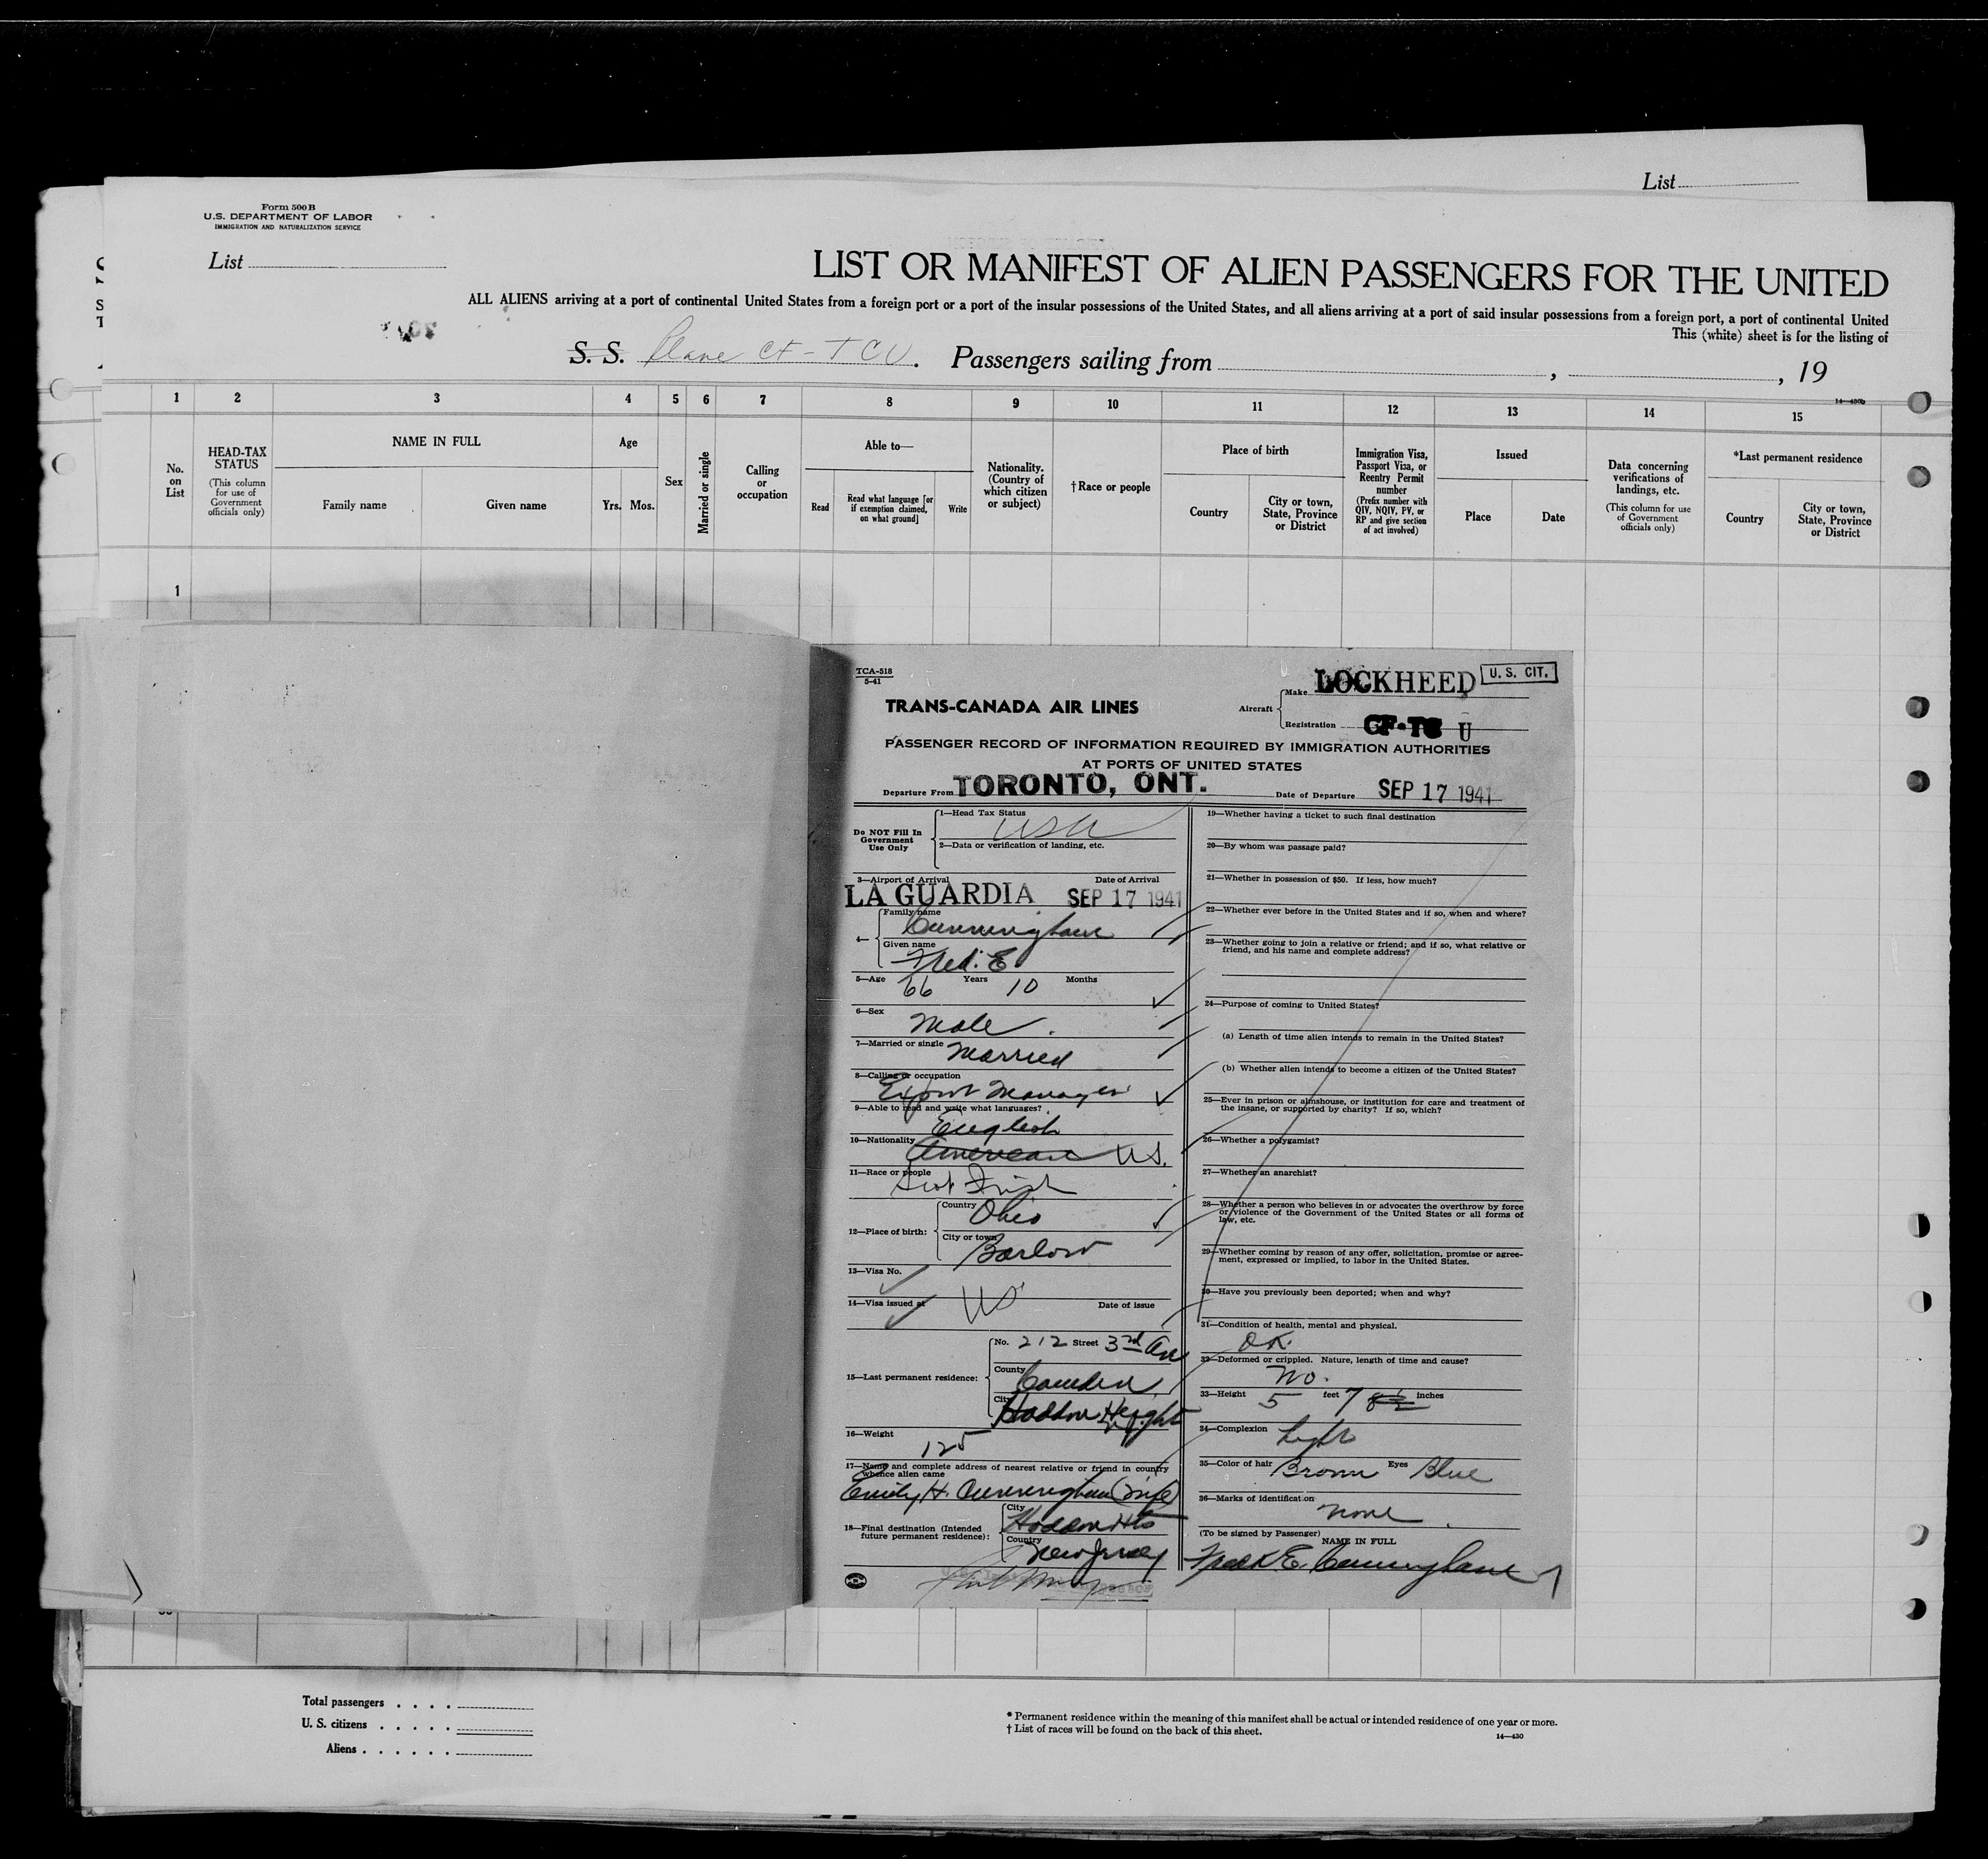 List
Form 500 B
U.S. DEPARTMENT OF LABOR
IMMIGRATION AND NATURALIZATION SERVICE
List
LIST OR MANIFEST OF ALIEN PASSENGERS FOR THE UNITED
ALL ALIENS arriving at a port of continental United States from a foreign port or a port of the insular possessions of the United States, and all aliens arriving at a port of said insular possessions from a foreign port, a port of continental United
This (white) sheet is for the listing of
S. S. Plane CF-TCU. Passengers sailing from , , 19
14—430b
1 2 3 4 5 6 7 8 9 10 11 12 13 14 15
No. on List
HEAD-TAX STATUS
(This column for use of Government officials only)
NAME IN FULL
Family name Given name
Age
Yrs. Mos.
Sex
Married or single
Calling or occupation
Able to—
Read
Read what language [or if exemption claimed, on what ground]
Write
Nationality. (Country of which citizen or subject)
†Race or people
Place of birth
Country
City or town, State, Province or District
Immigration Visa, Passport Visa, or Reentry Permit number
(Prefix number with QIV, NQIV, PV, or RP and give section of act involved)
Issued
Place Date
Data concerning verifications of landings, etc.
(This column for use of Government officials only)
*Last permanent residence
Country
City or town, State, Province or District
1
TCA-518
5-41
TRANS-CANADA AIR LINES
Aircraft
Make LOCKHEED
U. S. CIT.
Registration CF-TC U
PASSENGER RECORD OF INFORMATION REQUIRED BY IMMIGRATION AUTHORITIES
AT PORTS OF UNITED STATES
Departure From TORONTO, ONT. Date of Departure SEP 17 1941
Do NOT Fill In
Government
Use Only
1—Head Tax Status
USA
2—Data or verification of landing, etc.
3—Airport of Arrival Date of Arrival
LA GUARDIA SEP 17 1941
4—
Family name
Cunningham
Given name
Fred. E
5—Age 66 Years 10 Months
6—Sex
Male.
7—Married or single Married
8—Calling or occupation
Export Manager
9—Able to read and write what languages?
English
10—Nationality American U.S.
11—Race or people
Scot Irish
12—Place of birth:
Country
Ohio
City or town
Barlow
13—Visa No.
14—Visa issued at US Date of issue
15—Last permanent residence:
No. 212 Street 3rd Ave
County
Camden
City
Haddon Height
16—Weight
125
17—Name and complete address of nearest relative or friend in country
whence alien came
Emily H. Cunningham (Wife)
18—Final destination (Intended
future permanent residence):
City
Haddon Hts
Country
New Jersey
19—Whether having a ticket to such final destination
20—By whom was passage paid?
21—Whether in possession of $50. If less, how much?
22—Whether ever before in the United States and if so, when and where?
23—Whether going to join a relative or friend; and if so, what relative or
friend, and his name and complete address?
24—Purpose of coming to United States?
(a) Length of time alien intends to remain in the United States?
(b) Whether alien intends to become a citizen of the United States?
25—Ever in prison or almshouse, or institution for care and treatment of
the insane, or supported by charity? If so, which?
26—Whether a polygamist?
27—Whether an anarchist?
28—Whether a person who believes in or advocates the overthrow by force
or violence of the Government of the United States or all forms of
law, etc.
29—Whether coming by reason of any offer, solicitation, promise or agree-
ment, expressed or implied, to labor in the United States.
30—Have you previously been deported; when and why?
31—Condition of health, mental and physical.
OK
32—Deformed or crippled. Nature, length of time and cause?
No.
33—Height 5 feet 7 inches
34—Complexion Light
35—Color of hair Brown Eyes Blue
36—Marks of identification
None.
(To be signed by Passenger)
NAME IN FULL
Fred. E. Cunningham
Total passengers . . . .
U. S. citizens . . . . .
Aliens . . . . . .
* Permanent residence within the meaning of this manifest shall be actual or intended residence of one year or more.
† List of races will be found on the back of this sheet.
14—430